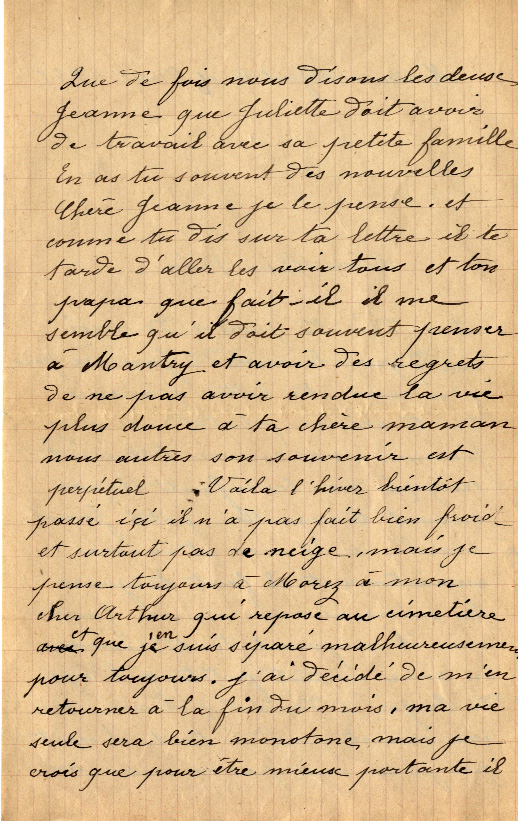 Que de fois nous disons les deuse
Jeanne que Juliette doit avoir
de travail avec sa petite famille
En as tu souvent des nouvelles
Chère Jeanne je le pense. et
comme tu dis sur ta lettre il te
tarde d'aller les voir tous et ton
papa que fait-il il me
semble qu'il doit souvent penser
à Mantry et avoir des regrets
de ne pas avoir rendue la vie
plus douce à ta chère maman
nous autres son souvenir est
perpétuel Voila l'hiver bientôt
passé içi il n'à pas fait bien froid
et surtout pas de neige, mais je
pense toujours à Morez à mon
cher Arthur qui repose au cimetière
et que j'en suis séparé malheureusement
pour toujours. j'ai décidé de m'en
retourner à la fin du mois, ma vie
seule sera bien monotone, mais je
crois que pour être mieux portante il